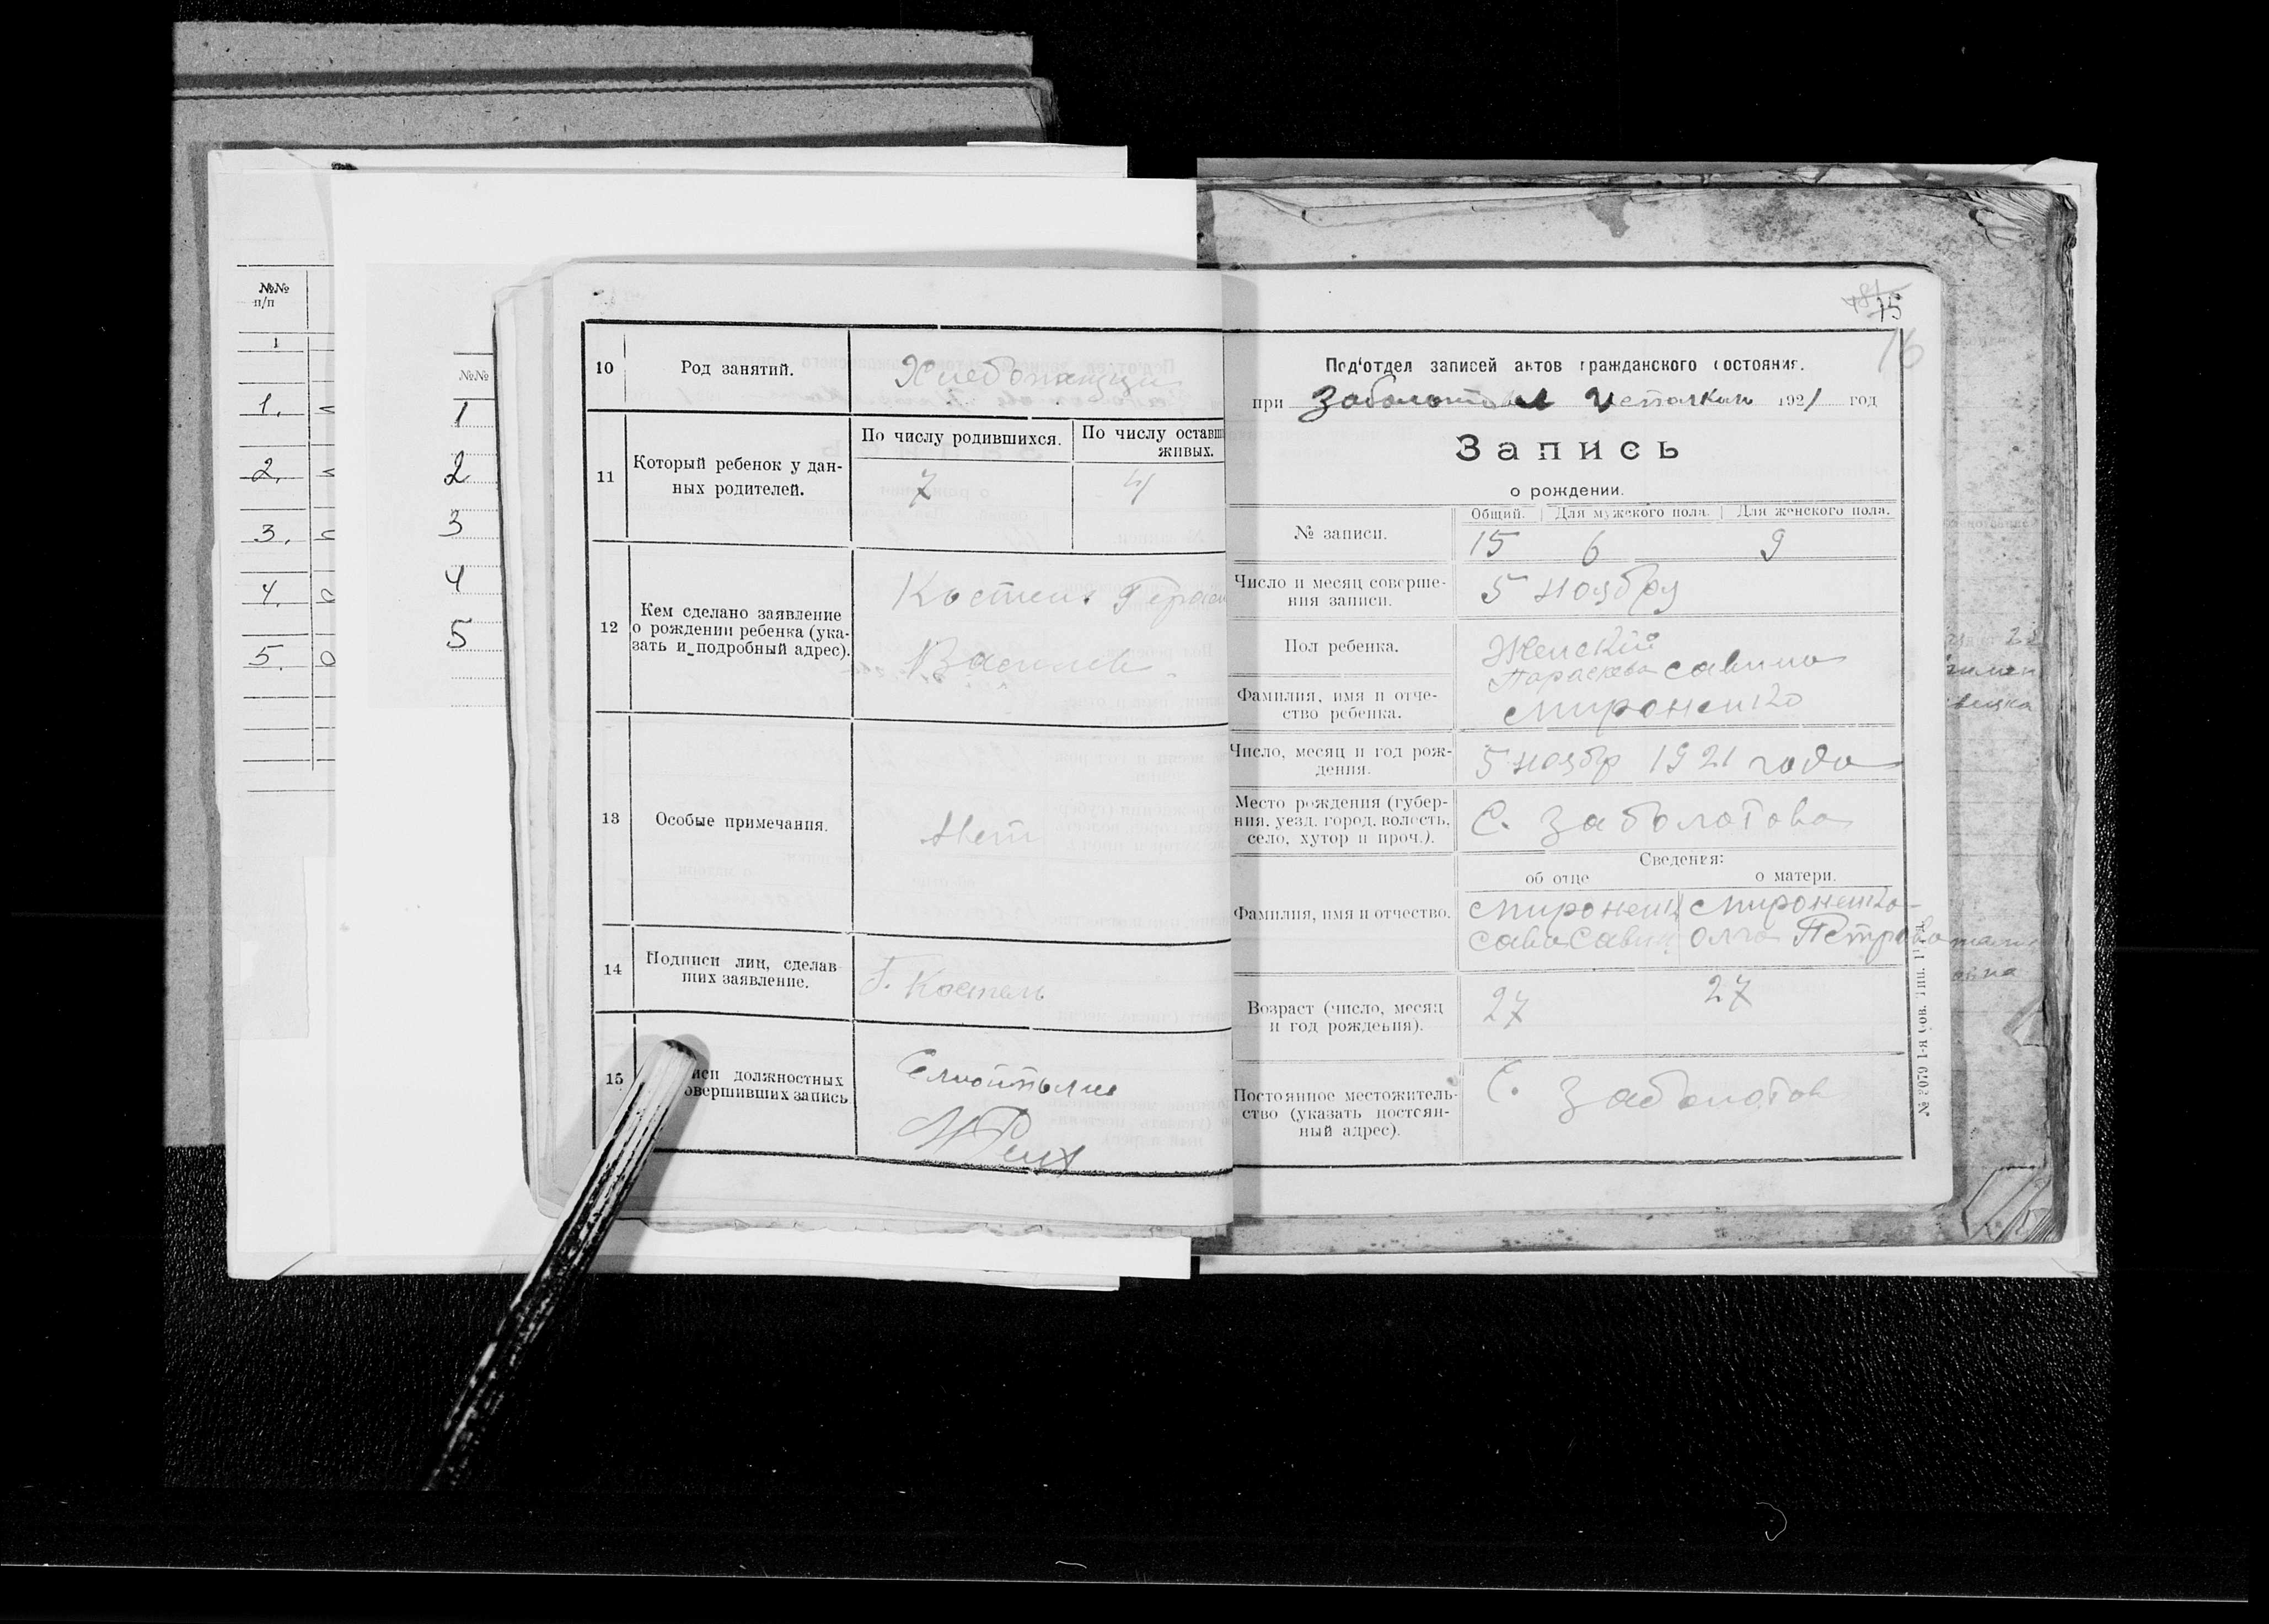 №№
п/п
1
1.
2.
3.
4.
5.
№№
1
2
3
4
5
10
Род занятий.
Хлебопашци
11
Который ребенок у дан-
ных родителей.
По числу родившихся.
По числу оставш
живых.
7
4
12
Кем сделано заявление
о рождении ребенка (ука-
зать и подробный адрес).
Костюк Герасим
Васильев
13
Особые примечания.
Нет
14
Подписи лиц, сделав
ших заявление.
Г. Костюк
15
иси должностных
овершивших запись
75
16
Под'отдел записей актов гражданского состояния.
при Заболотов Исполком 1921 год
Запись
о рождении.
№ записи.
Общий.
Для мужского пола.
Для женского пола.
15
6
9
Число и месяц соверше-
ния записи.
5 ноября
Пол ребенка.
Женский
Фамилия, имя и отче-
ство ребенка.
Параскева Савина
Мироненко
Число, месяц и год рож-
дения.
5 ноябр 1921 года
Место рождения (губер-
ния, уезд, город, волость,
село, хутор и проч.).
С. Заболотова
Сведения:
об отце
о матери.
Фамилия, имя и отчество.
Мироненк
Сава Савин
Мироненко
Олга Петрова
Возраст (число, месяц
и год рождения).
27
27
Постоянное местожитель-
ство (указать постоян-
ный адрес).
С. Заболотов
№ 2079 1-я Сов. Тип.